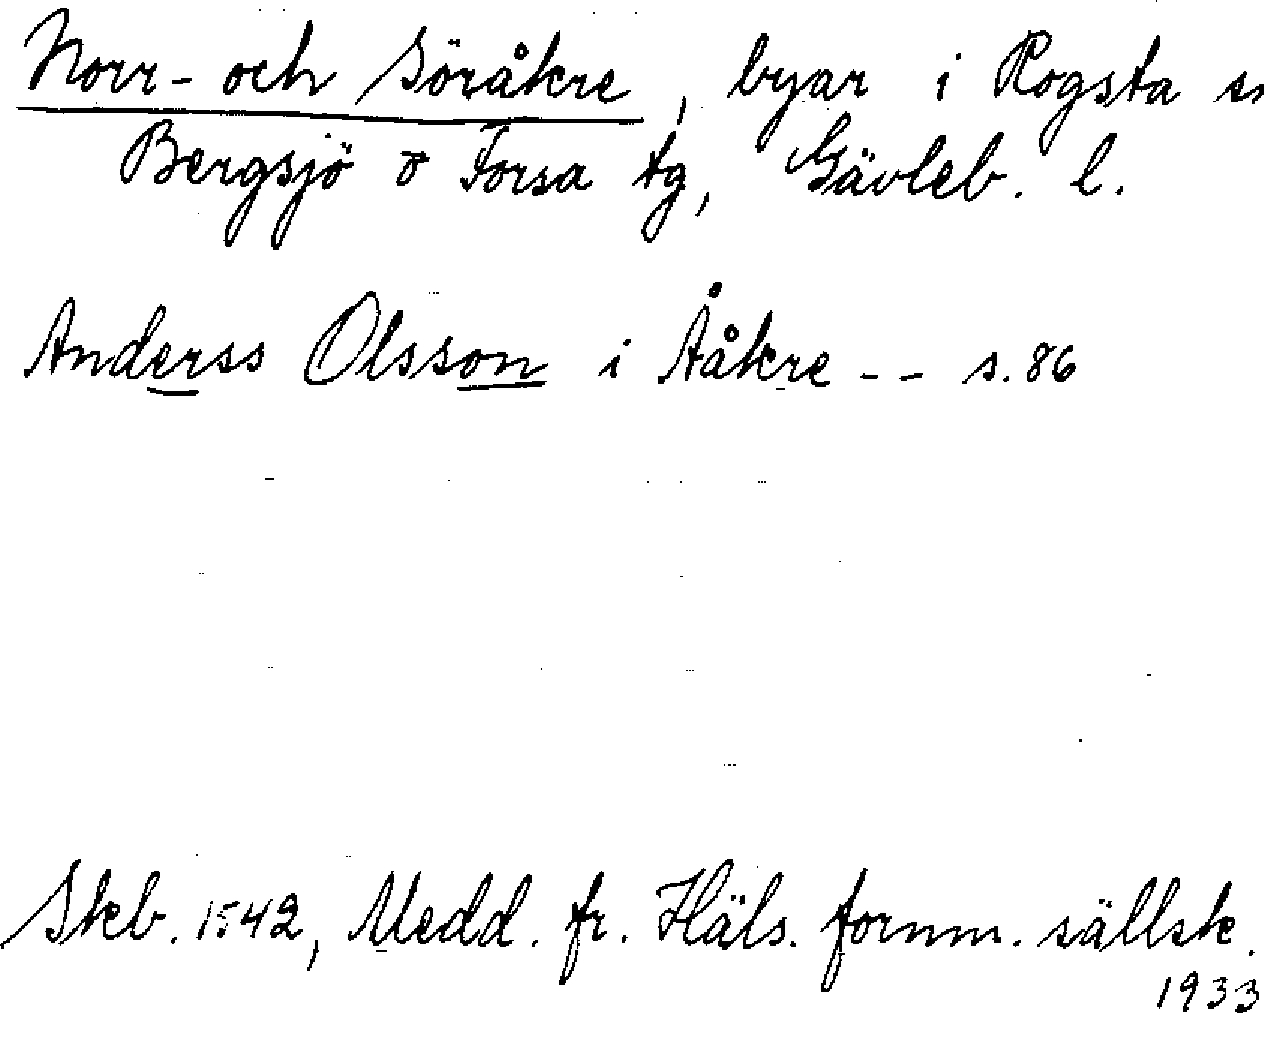 Norr- och Söråkre, byar i Rogsta sn
Bergsjö o Forsa tg, Gävleb. l.
Anderss Olsson i Ååkre - - s. 86
Skb. 1542, Medd. fr. Häls. fornm. sällsk.
1933